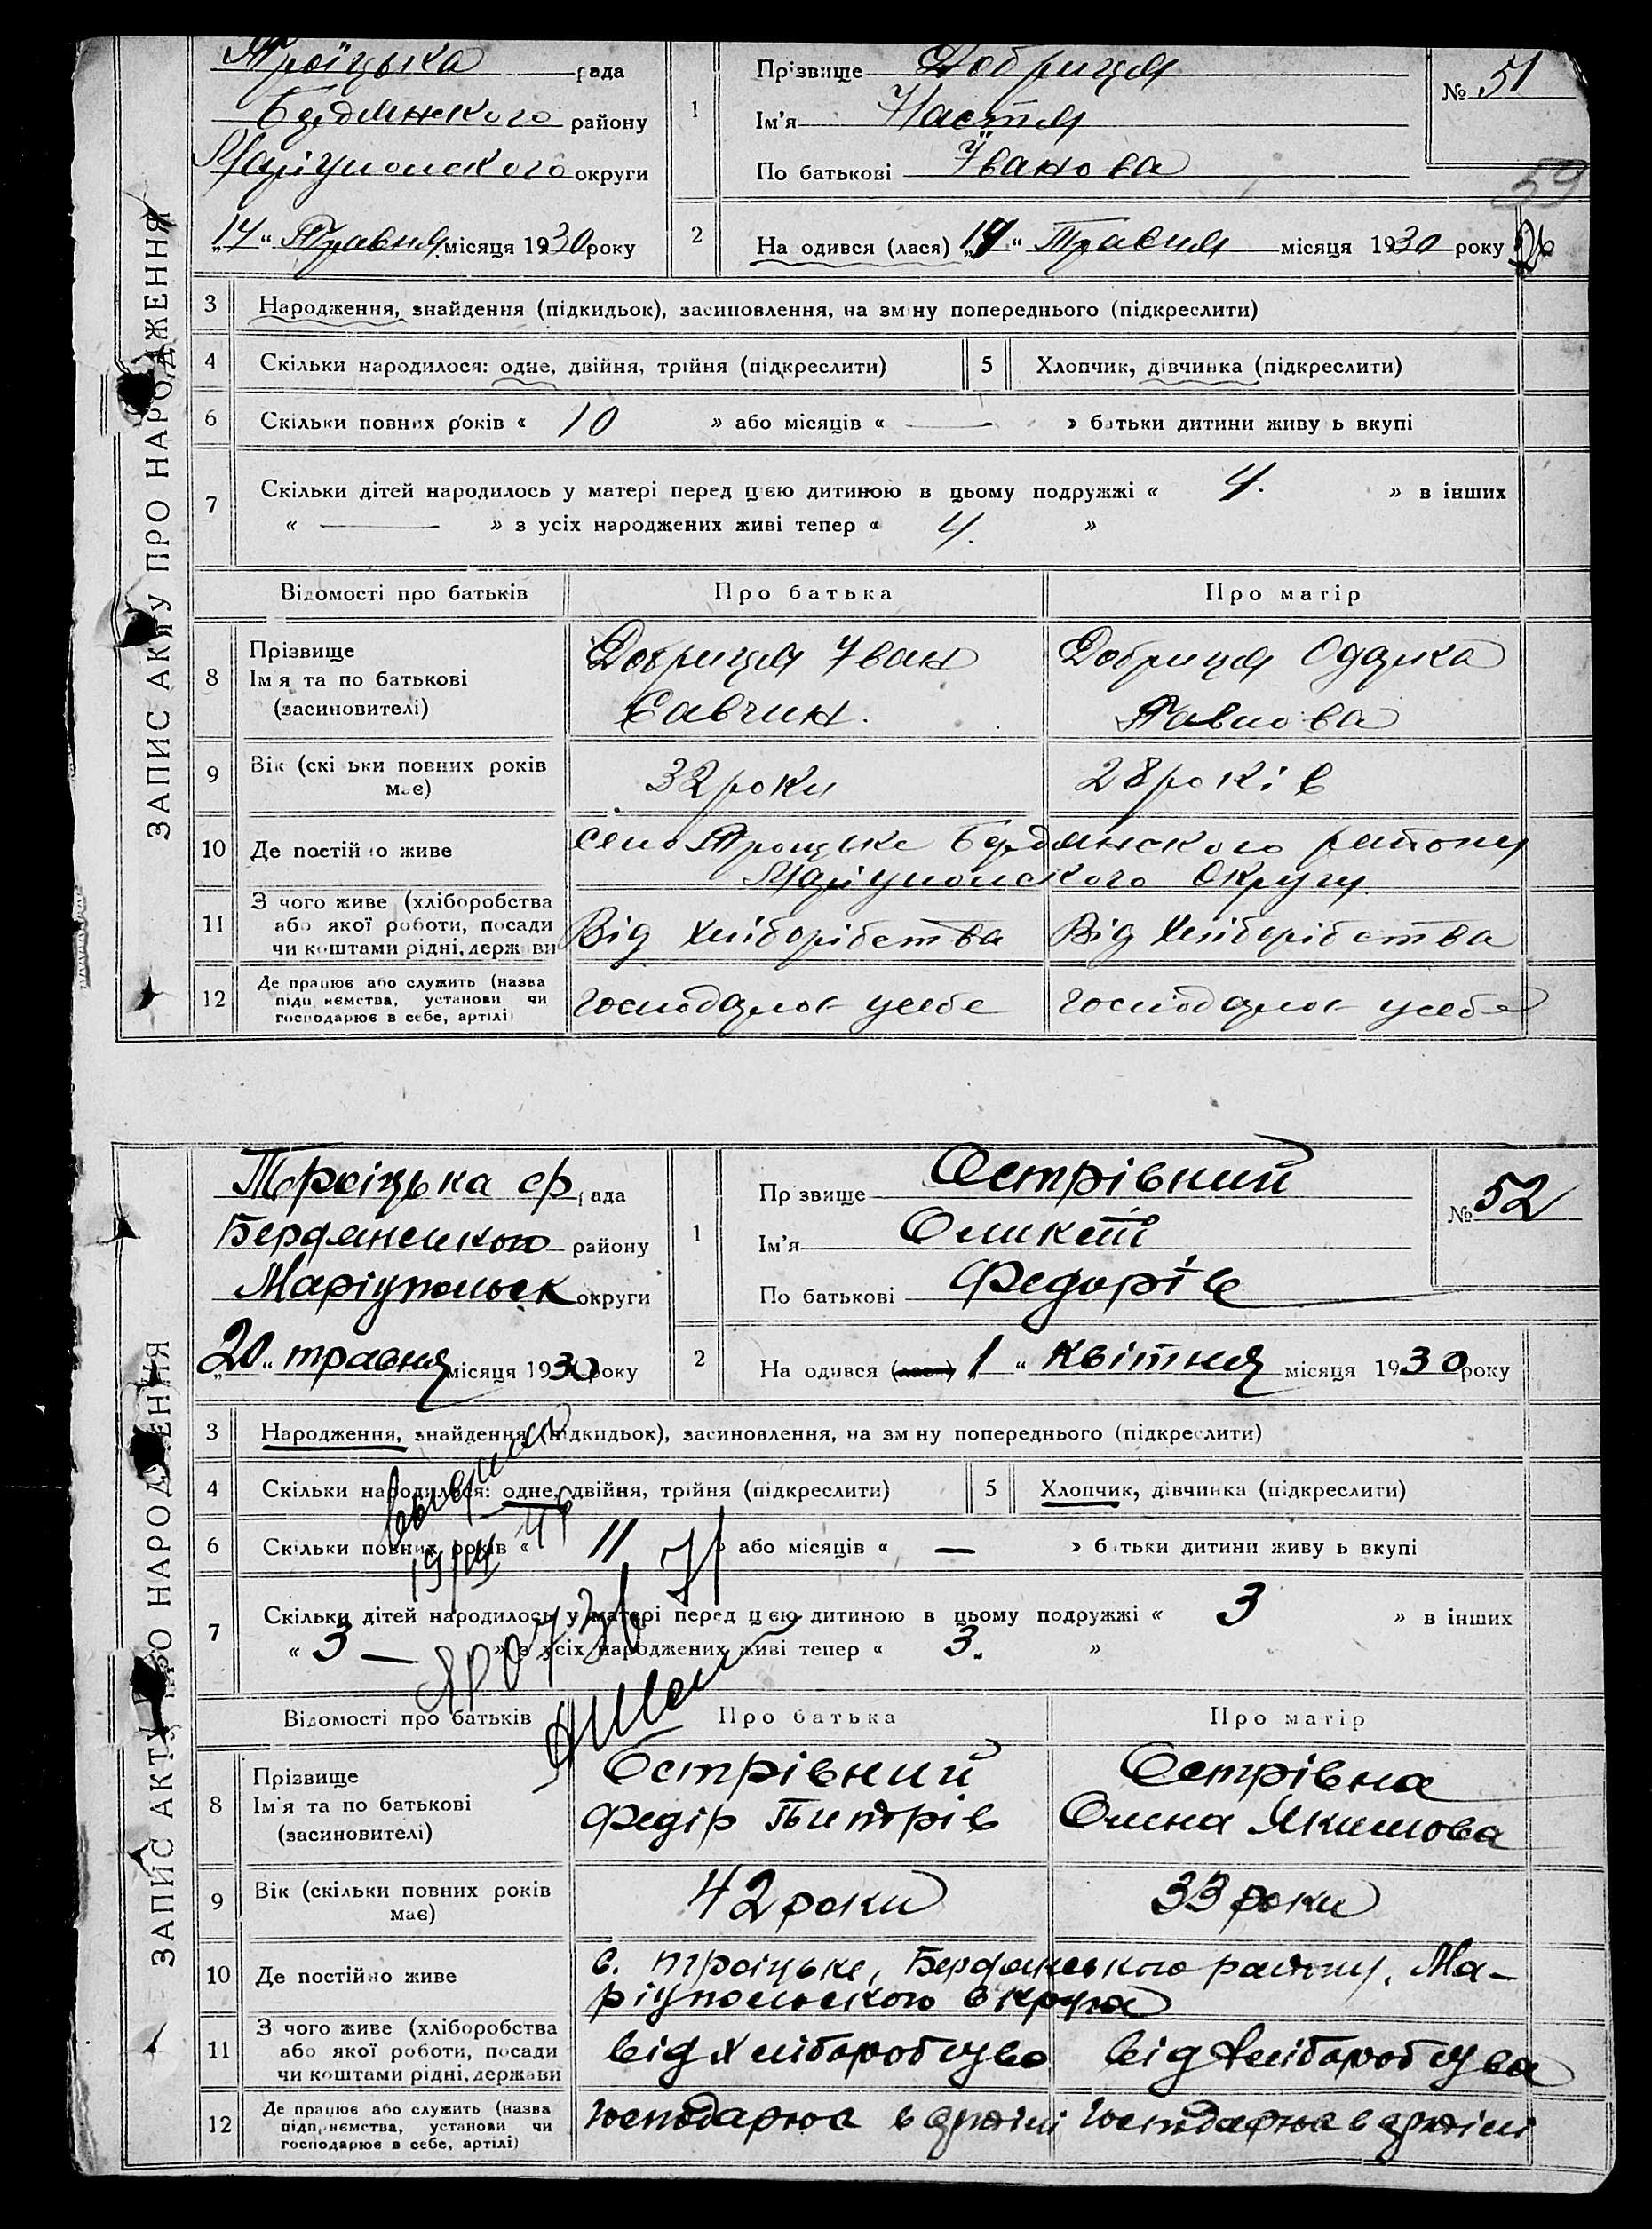 ЗАПИС АКТУ ПРО НАРОДЖЕННЯ
Троїцька рада
Бердянского району
Маріупольского округи
„14“ Травня місяця 1930 року
1
Прізвище Добриця
Ім'я Настя
По батькові Іванова
№ 51
59
2
На одився (лася) „14“ Травня місяця 1930 року
3 Народження, знайдення (підкидьок), засиновлення, на зміну попереднього (підкреслити)
4 Скільки народилося: одне, двійня, трійня (підкреслити)
5 Хлопчик, дівчинка (підкреслити)
6 Скільки повних років « 10 » або місяців « — » батьки дитини живу ь вкупі
7 Скільки дітей народилось у матері перед цією дитиною в цьому подружжі « 4. » в інших
« — » з усіх народжених живі тепер « 4. »
Відомості про батьків Про батька Про матір
8 Прізвище
Ім я та по батькові
(засиновителі)
Добриця Іван
Савчин.
Добриця Одарка
Павлова
9 Вік (скі ьки повних років
має)
32 роки
28 років
10 Де постійно живе
село Троцьке Бердянского району
Маріупольского Округи
11 З чого живе (хліборобства
або якої роботи, посади
чи коштами рідні, держави
Від хліборібства
Від хліборібства
12 Де працює або служить (назва
підприємства, установи чи
господарює в себе, артілі)
господарює усебе
господарює усебе
ЗАПИС АКТУ ПРО НАРОДЖЕННЯ
Троіцька ср рада
Бердянського району
Маріупольськ округи
„20“ травня місяця 1930 року
1
Пр звище Острівний
Ім'я Оликсій
По батькові Федорів
№ 52
2
На одився (лася) „1“ квітня місяця 1930 року
3 Народження, знайдення (підкидьок), засиновлення, на зм ну попереднього (підкреслити)
4 Скільки народилося: одне, двійня, трійня (підкреслити)
5 Хлопчик, дівчинка (підкреслити)
6 Скільки повних років « 11 » або місяців « — » батьки дитини живу ь вкупі
7 Скільки дітей народилось у матері перед цією дитиною в цьому подружжі « 3 » в інших
« 3 — » з усіх народжених живі тепер « 3. »
Відомості про батьків Про батька Про матір
8 Прізвище
Ім'я та по батькові
(засиновителі)
Острівний
Федір
Острівна
Олена Якимова
9 Вік (скільки повних років
має)
42 роки
33 роки
10 Де постійно живе
с. Троіцьке, Бердянського району, Ма-
ріупольського округа
11 З чого живе (хліборобства
або якої роботи, посади
чи коштами рідні, держави
від хліборобцтво
від хліборобцтва
12 Де працює або служить (назва
підприємства, установи чи
господарює в себе, артілі)
господарює в артілі
господарює в артілі